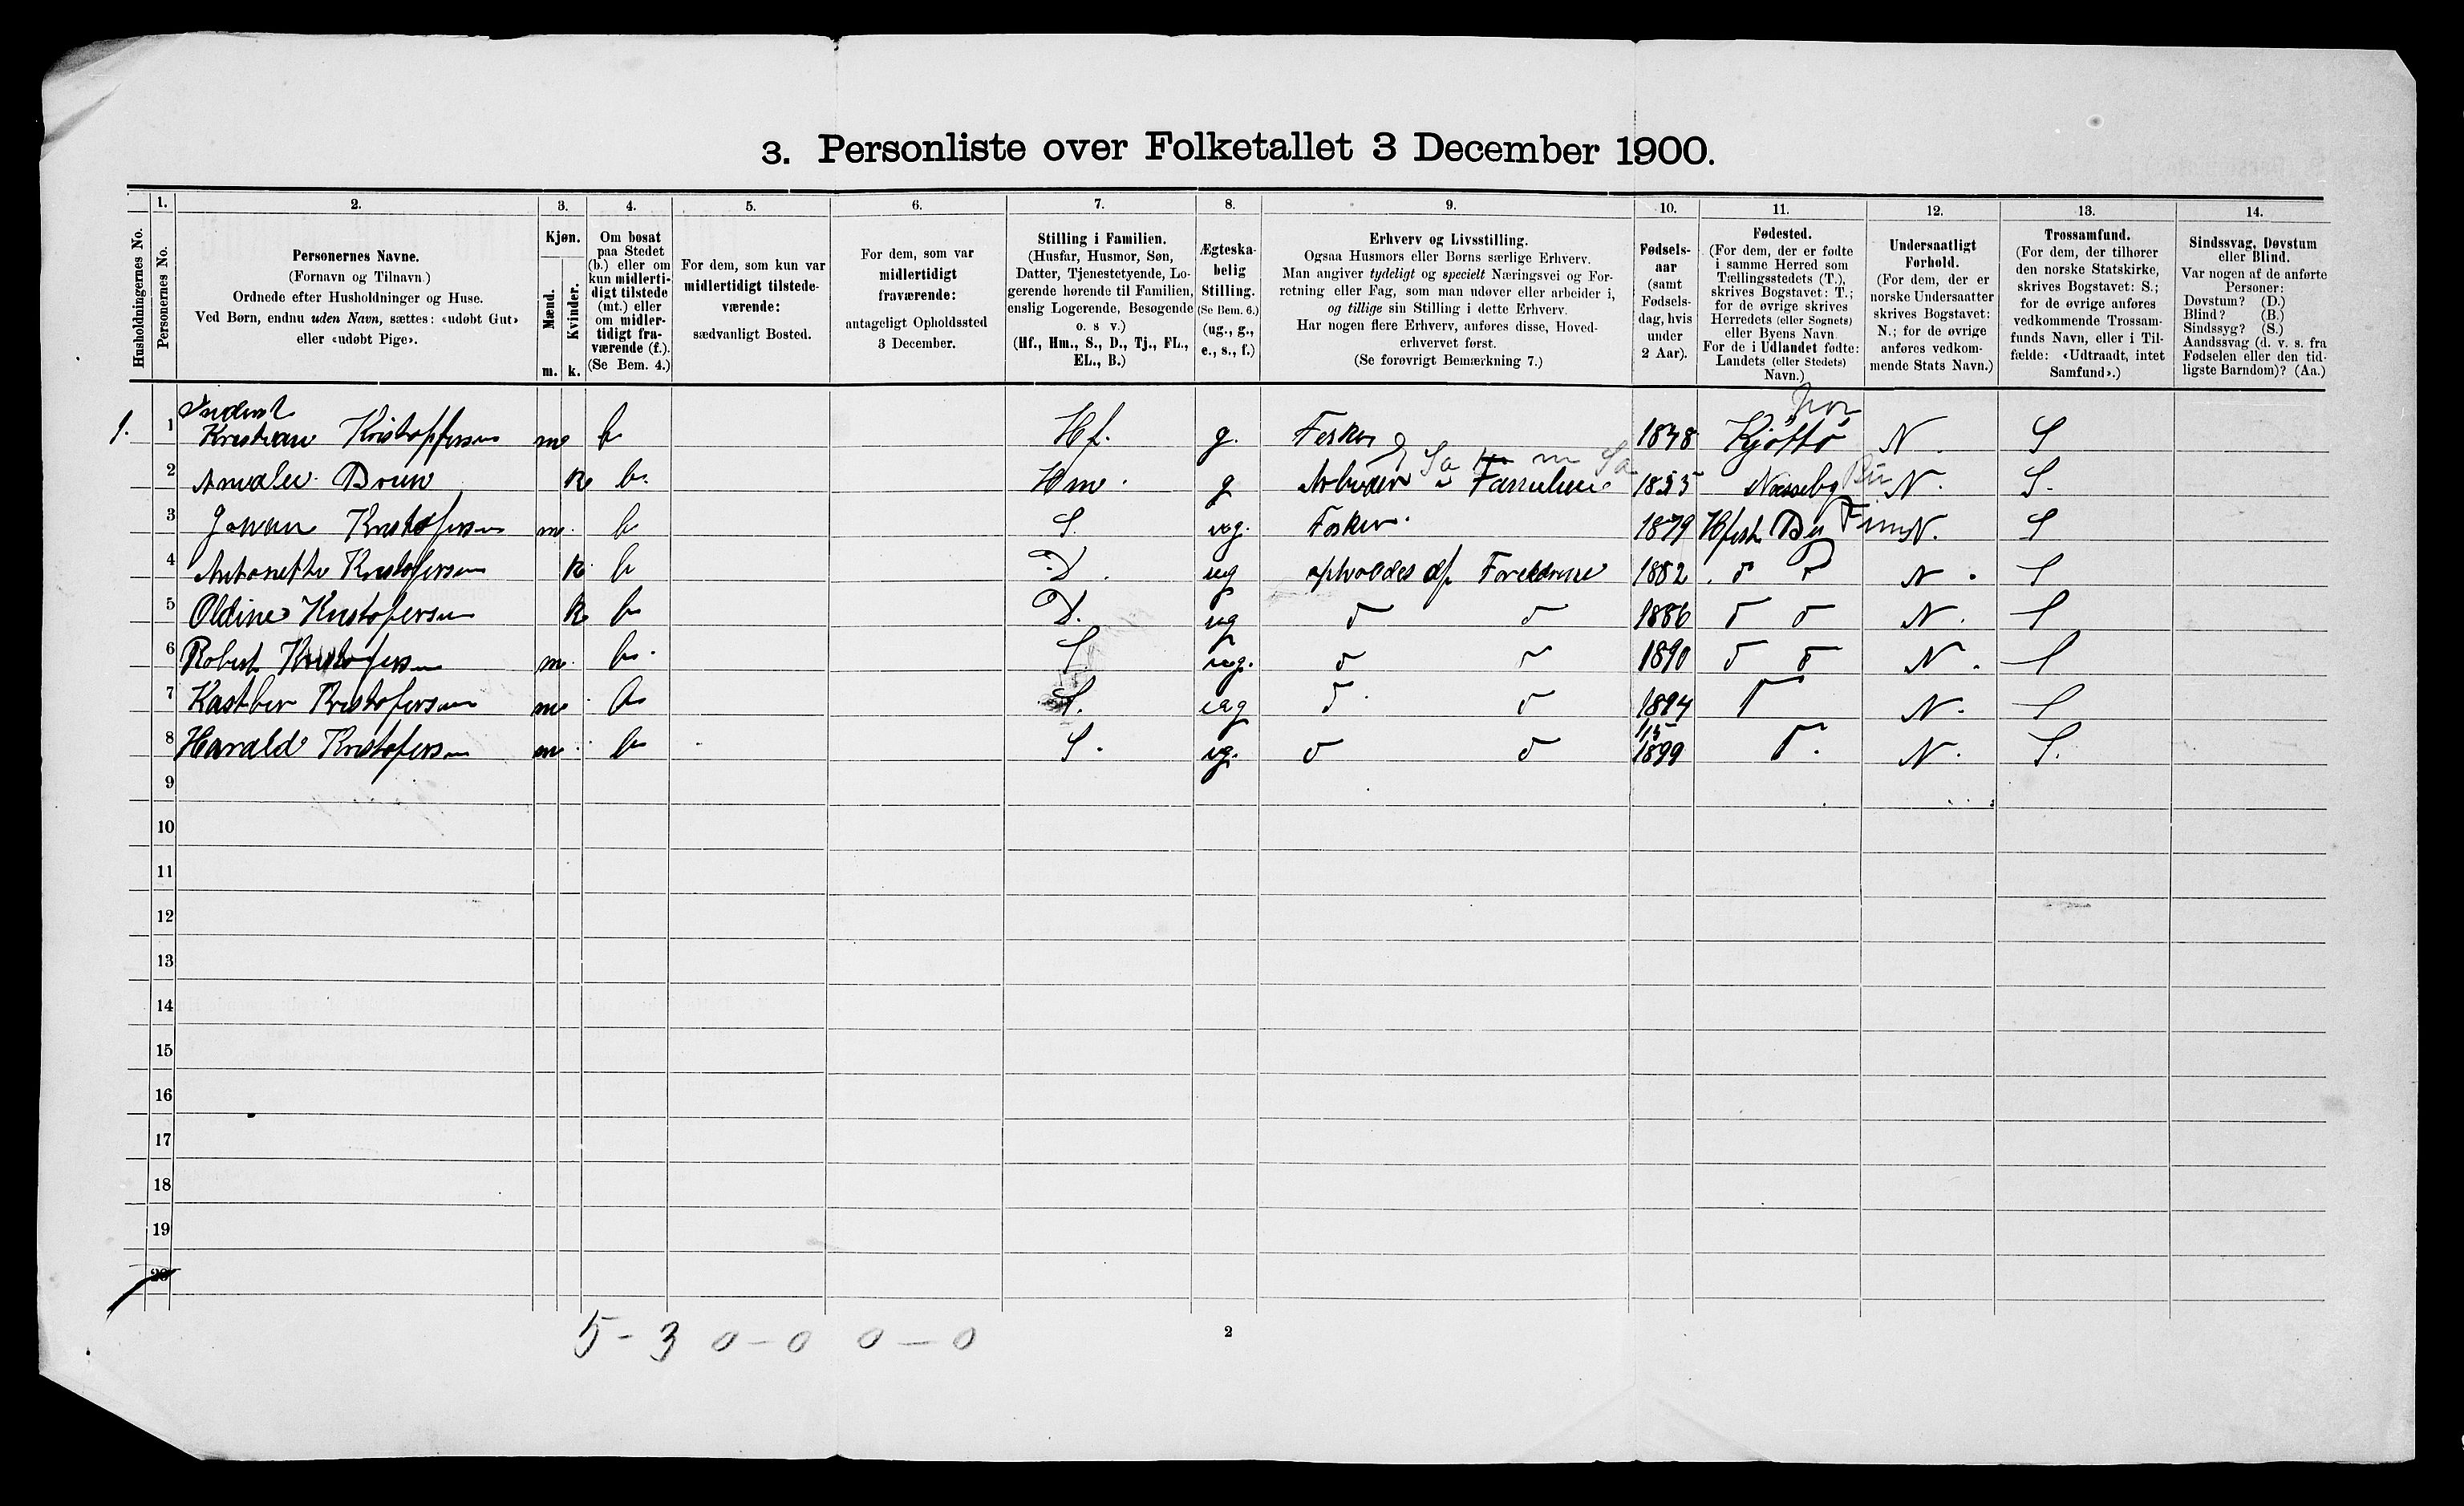 3. Personliste over Folketallet 3 December 1900.
1. 2. 3. 4. 5. 6. 7. 8. 9. 10. 11. 12. 13. 14.
Husholdningernes No.
Personernes No.
Personernes Navne.
(Fornavn og Tilnavn)
Ordnede efter Husholdninger og Huse.
Ved Børn, endnu uden Navn, sættes: «udøbt Gut»
eller «udøbt Pige».
Kjøn.
Mænd.
m.
Kvinder.
k.
Om bosat
paa Stedet
(b.) eller om
kun midlerti-
digt tilstede
(mt.) eller
om midler-
tidigt fra-
værende (f.).
(Se Bem. 4.)
For dem, som kun var
midlertidigt tilstede-
værende:
sædvanligt Bosted.
For dem, som var
midlertidigt
fraværende:
antageligt Opholdssted
3 December.
Stilling i Familien.
(Husfar, Husmor, Søn,
Datter, Tjenestetyende, Lo-
gerende hørende til Familien,
enslig Logerende, Besøgende
o. s v.)
(Hf., Hm., S., D., Tj., FL.,
EL., B.)
Ægteska-
belig
Stilling.
(Se Bem. 6.)
(ug., g.,
e., s., f.)
Erhverv og Livsstilling.
Ogsaa Husmors eller Børns særlige Erhverv.
Man angiver tydeligt og specielt Næringsvei og For-
retning eller Fag, som man udøver eller arbeider i,
og tillige sin Stilling i dette Erhverv.
Har nogen flere Erhverv, anføres disse, Hoved-
erhvervet først.
(Se forøvrigt Bemærkning 7.)
Fødsels-
aar
(samt
Fødsels-
dag, hvis
under
2 Aar).
Fødested.
(For dem, der er fødte
i samme Herred som
Tællingsstedets (T.),
skrives Bogstavet: T.;
for de øvrige skrives
Herredets (eller Sognets)
eller Byens Navn.
For de i Udlandet fødte:
Landets (eller Stedets)
Navn.)
Undersaatligt
Forhold.
(For dem, der er
norske Undersaatter
skrives Bogstavet:
N.; for de øvrige
anføres vedkom-
mende Stats Navn.)
Trossamfund.
(For dem, der tilhører
den norske Statskirke,
skrives Bogstavet: S.;
for de øvrige anføres
vedkommende Trossam-
funds Navn, eller i Til-
fælde: «Udtraadt, intet
Samfund».)
Sindssvag, Døvstum
eller Blind.
Var nogen af de anførte
Personer:
Døvstum? (D.)
Blind? (B.)
Sindssyg? (S.)
Aandssvag (d. v. s. fra
Fødselen eller den tid-
ligste Barndom)? (Aa.)
1. 1 Kristian Kristoffersen m b Hf. g. Fisker 1848 Kjöttö N. S
2 Amalie Brun k b. Hm. g Arbeider i Familien 1855 Næsseby N. S.
3 Johan Kristofersen m. b S. ug. Fisker. 1879 N. S
4 Antonette Kristofersen k. b D. ug opholdes af Foreldrene 1882 N. S
5 Oldine Kristofersen k b D. ug 1886 N. S
6 Robert Kristofersen m. b. S ug. 1890 N. S
7 Kristofersen m. b S. ug 1894 N. S
8 Harald Kristofersen m. b S. ug. 1899 N. S.
9
10
11
12
13
14
15
16
17
18
19
20
5 - 3 0 - 0 0 - 0
2